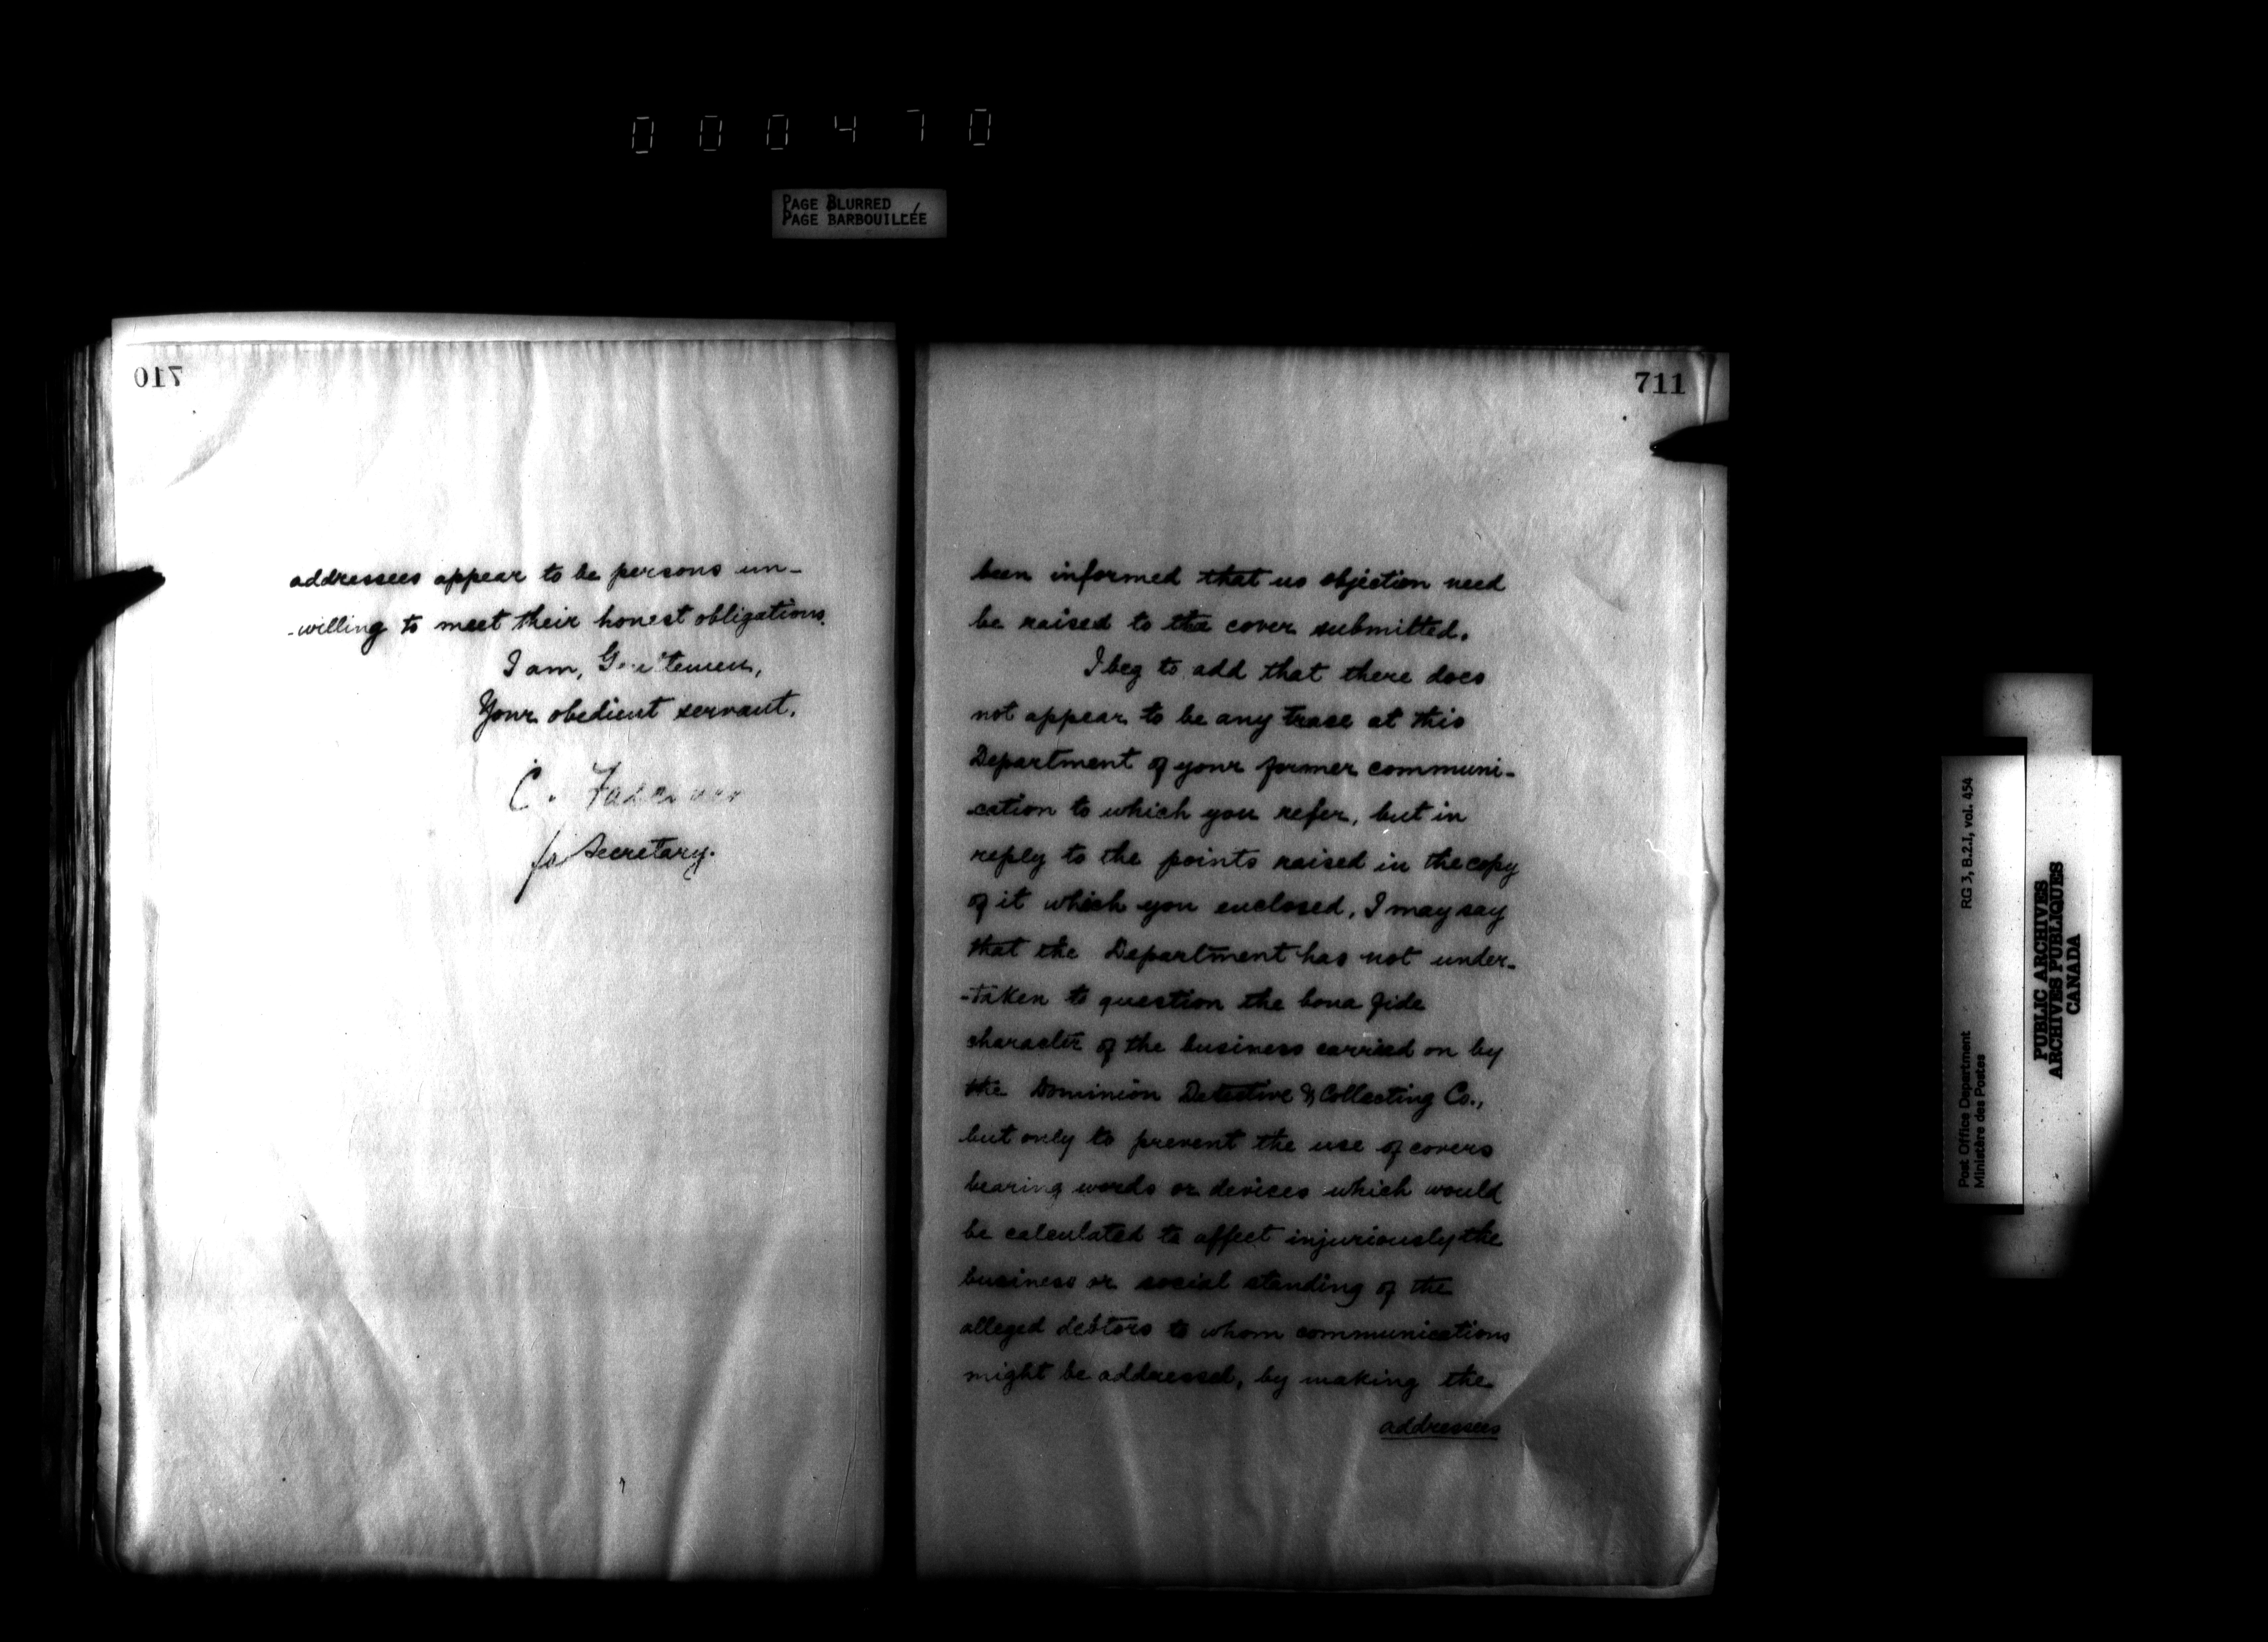 000470
PAGE BLURRED
PAGE BARBOUILLÉE
710
addressees appear to be persons un-
-willing to meet their honest obligations.
I am, Gentlemen,
Your obedient servant,
C.
for Secretary.
711
been informed that no objection need
be raised to the cover submitted.
I beg to add that there does
not appear to be any trace at this
Department of your former communi-
-cation to which you refer, but in
reply to the points raised in the copy
of it which you enclosed, I may say
that the Department has not under-
-taken to question the bona fide
character of the business carried on by
the Dominion Detective & Collecting Co.,
but only to prevent the use of covers
bearing words or devices which would
be calculated to affect injuriously the
business or social standing of the
alleged debtors to whom communications
might be addressed, by making the
addressees
Post Office Department RG 3, B.2.1, vol. 454
Ministère des Postes
PUBLIC ARCHIVES
ARCHIVES PUBLIQUES
CANADA